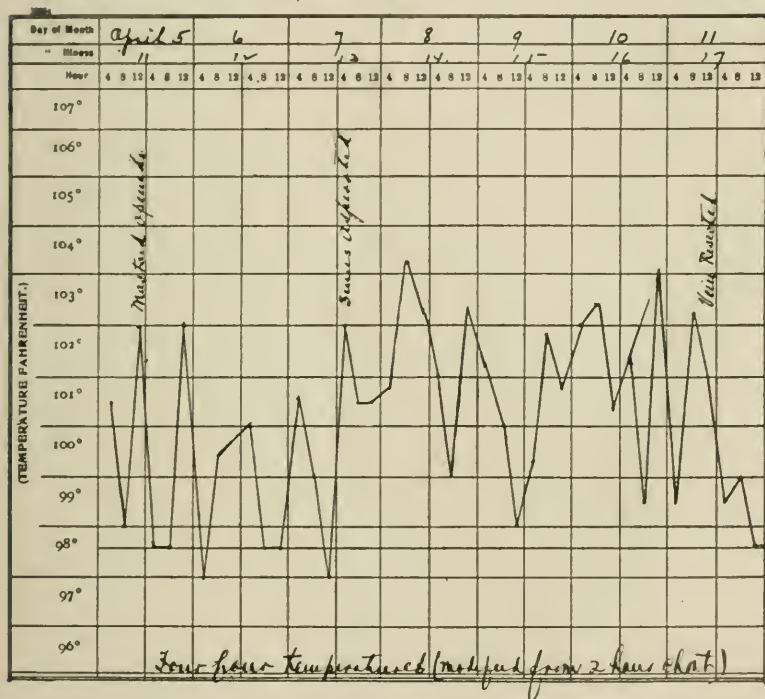 Day of Month April 5 6 7 8 9 10 11
" Illness 11 12 13 14 15 16 17
Hour 4 8 12 4 8 12 4 8 12 4 8 12 4 8 12 4 8 12 4 8 12 4 8 12 4 8 12 4 8 12 4 8 12 4 8 12 4 8 12 4 8 12
107°
106°
105°
104°
103°
102°
101°
100°
99°
98°
97°
96°
(TEMPERATURE FAHRENHEIT.)
Mastoid opened
Sinus Aspirated
Vein Resected
Four hour temperatures (modified from 2 hour chart)